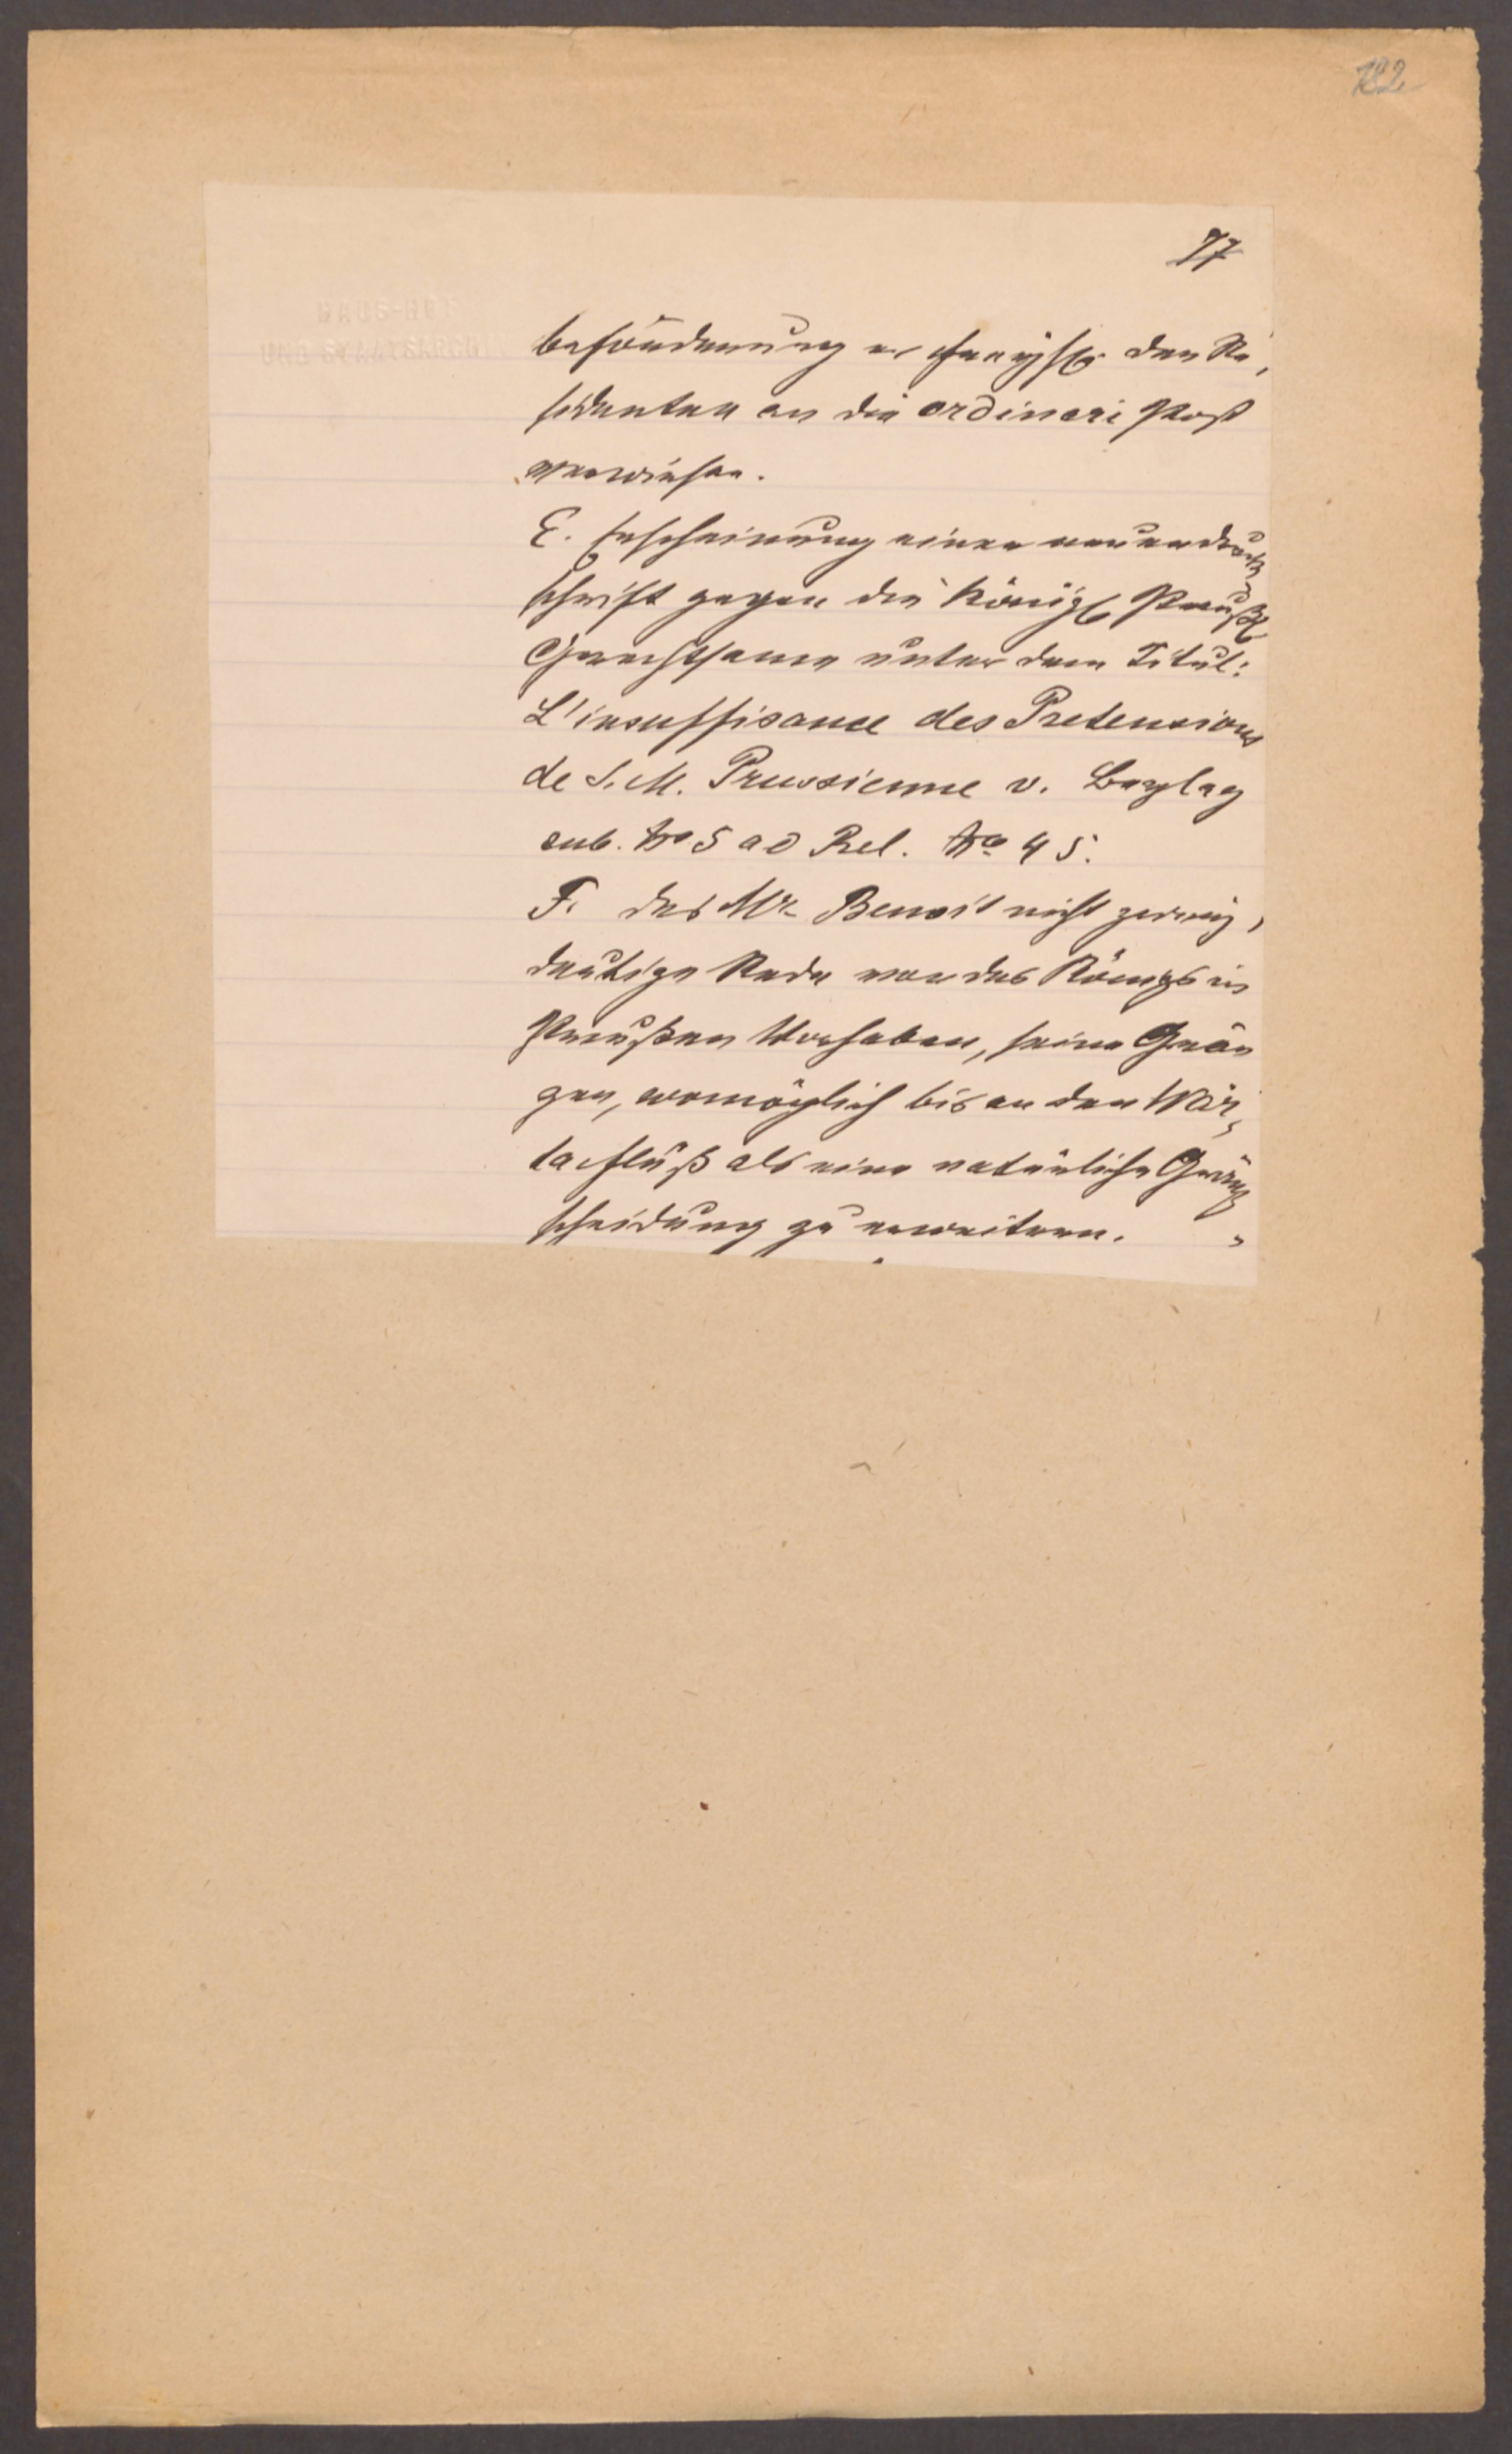 182
77
HAUS-HOF
UND STAATSARCHIV
beförderung des Re,
sidenten an die ordinari Post
verwiesen.
E. Erscheinung einer neuen druck
schrift gegen die Königl Preußl
Gerechtsame unter dem Titul:
L'insuffisance des Pretensions
de S. M. Prussienne v. Beylag
sub. No 5 ad Rel. No 45.
F. des Mr Benoit nicht zwey,
deutige Rede von des Königs in
Preußen Vorhaben, seine Grän
zen, womöglich bis an den War,
ta fluß als eine natürliche Gränz
scheidung zu erweitern.